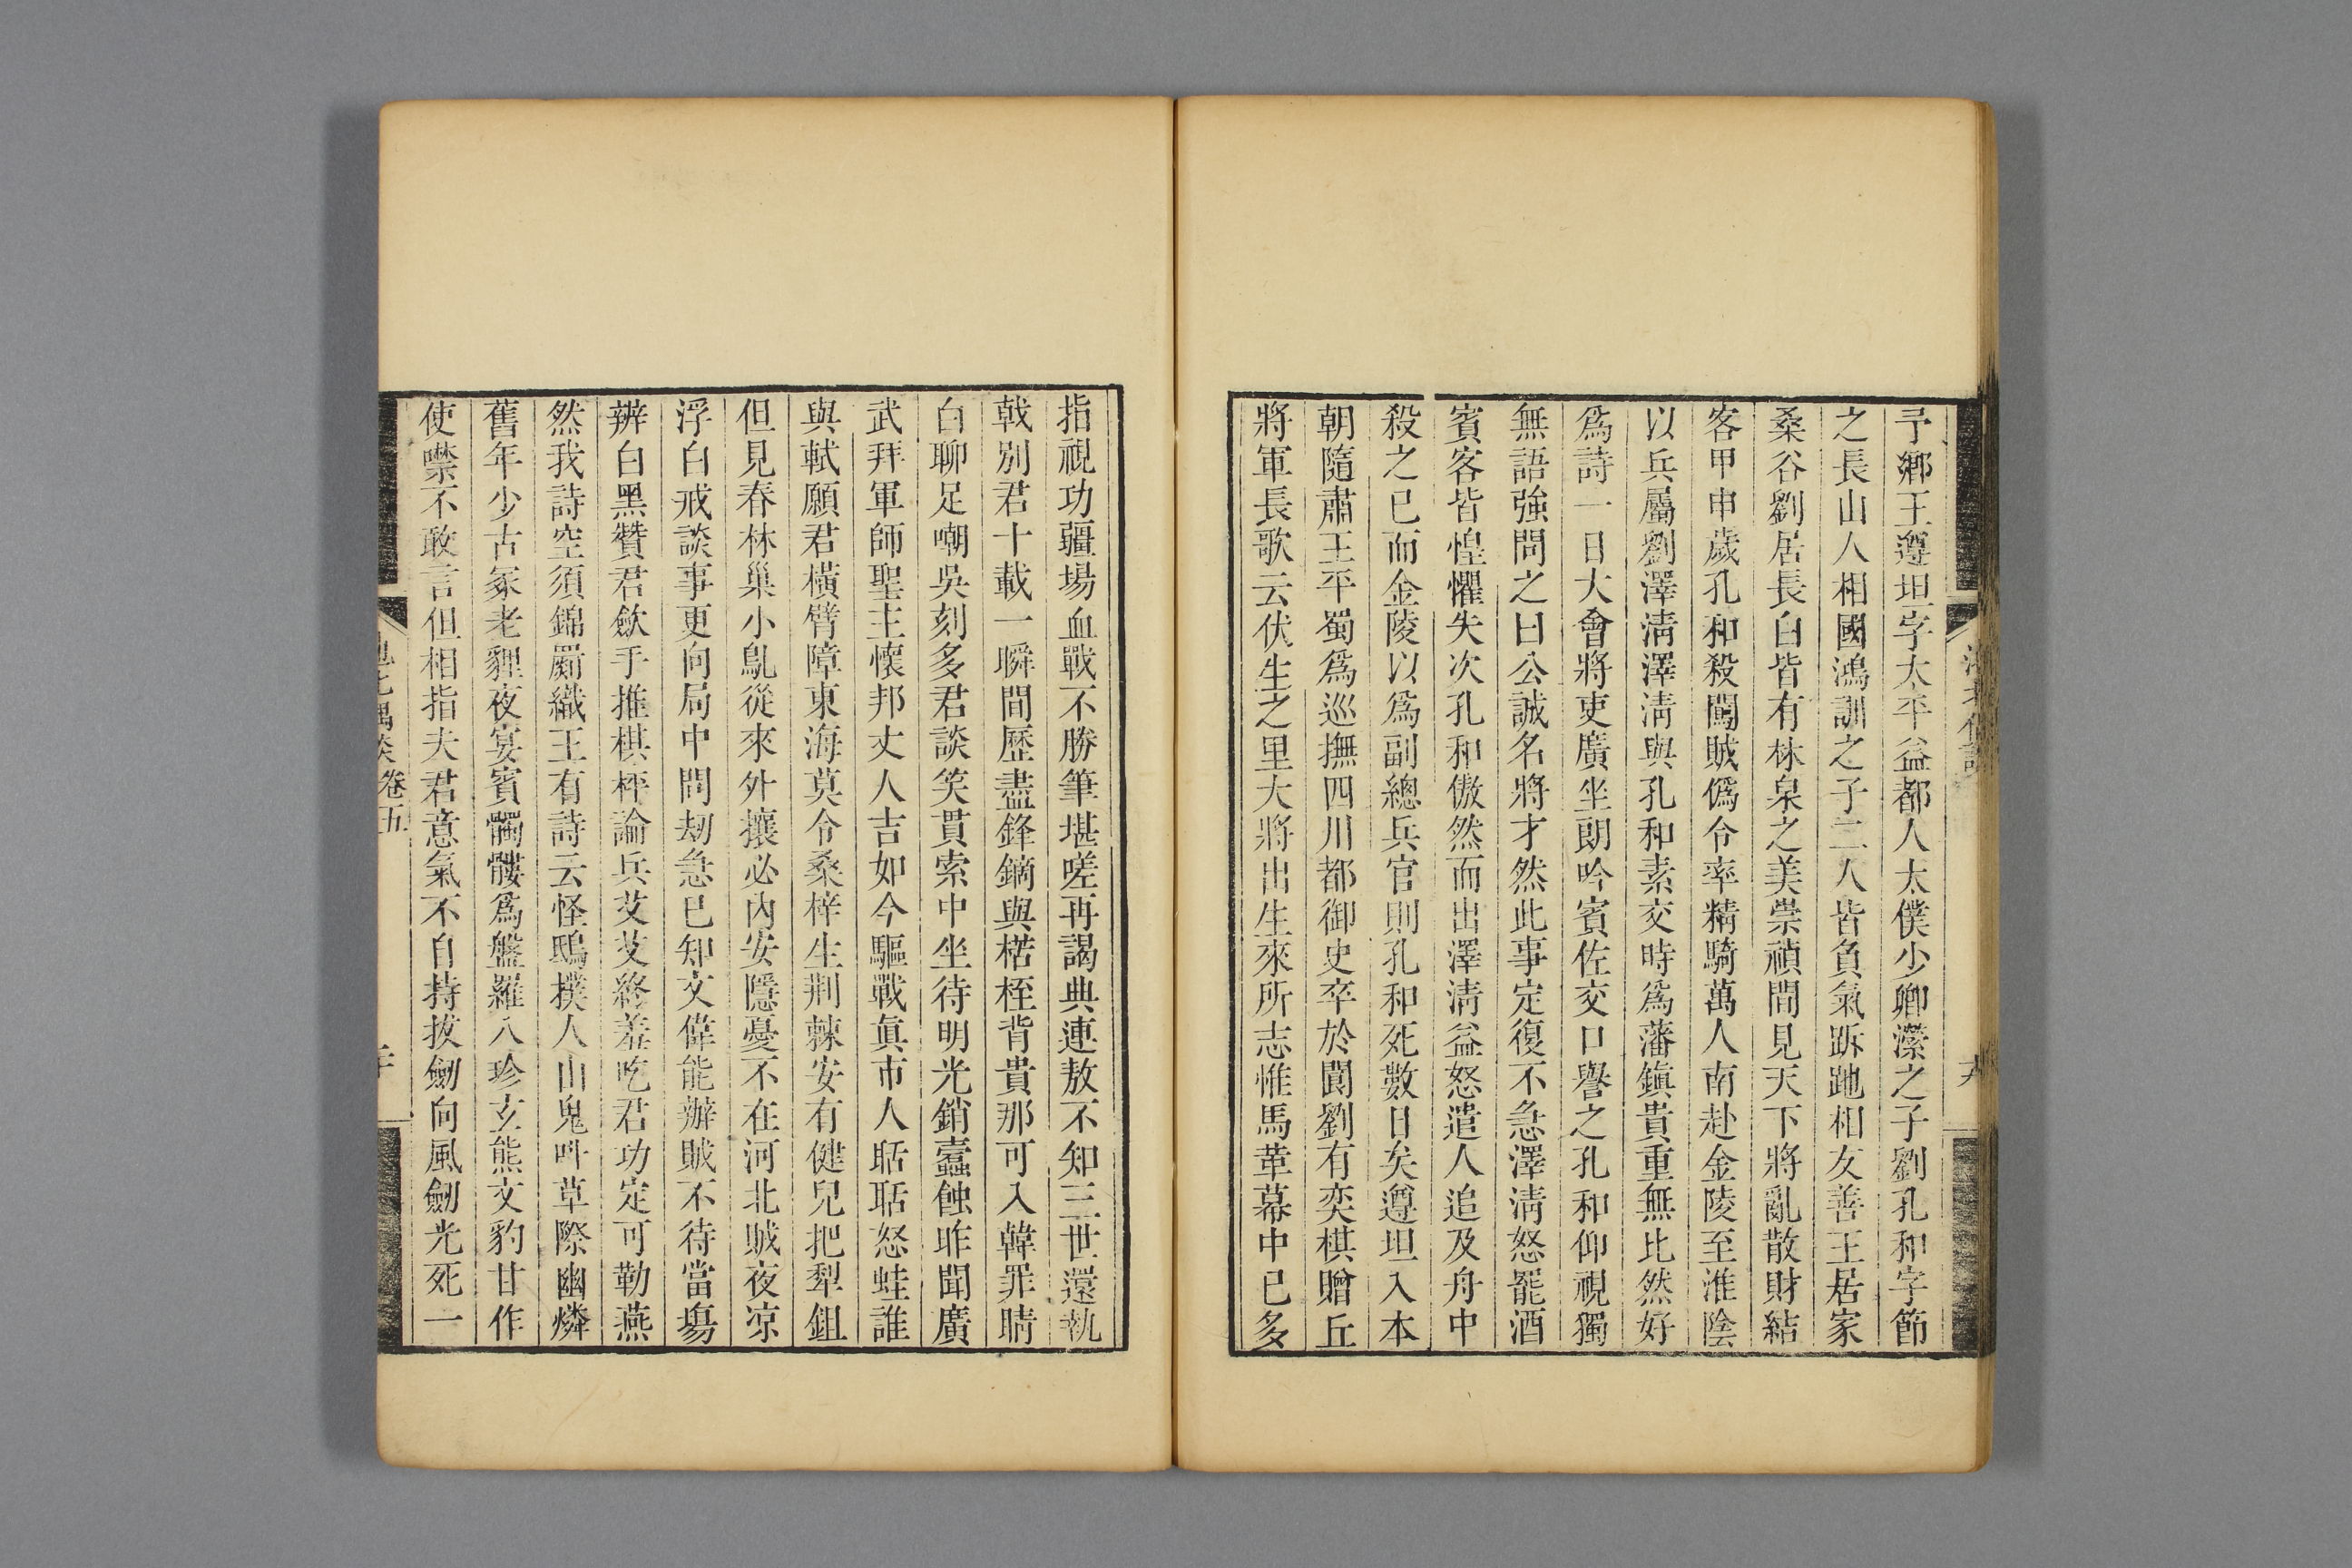 予鄉王遵坦字太平益都人太僕少卿濚之子劉孔和字節
之長山人相國鴻訓之子二人皆負氣跅跎相友善王居家
桑谷劉居長白皆有林泉之美崇禎間見天下將亂散財結
客甲申歲孔和殺闖賊僞令率精騎萬人南赴金陵至淮陰
以兵屬劉澤淸澤淸與孔和素交時爲藩鎭貴重無比然好
爲詩一日大會將吏廣坐朗吟賓佐交口譽之孔和仰視獨
無語強問之曰公誠名將才然此事定復不急澤淸怒罷酒
賓客皆惶懼失次孔和傲然而出澤淸益怒遣人追及舟中
殺之已而金陵以爲副總兵官則孔和死數日矣遵坦入本
朝隨肅王平蜀爲巡撫四川都御史卒於閬劉有奕棋贈丘
將軍長歌云伏生之里大將出生來所志惟馬革幕中已多
九
指視功疆場血戰不勝筆堪嗟再謁典連敖不知三世還執
戟別君十載一瞬間歷盡鋒鏑與楛桎背貴那可入韓罪睛
白聊足嘲吳刻多君談笑貫索中坐待明光銷蠹蝕昨聞廣
武拜軍師聖主懷邦丈人吉如今驅戰眞市人聒聒怒蛙誰
與軾願君橫臂障東海莫令桑梓生荆棘安有健兒把犁鉏
但見春林巢小鳦從來外攘必內安隱憂不在河北賊夜凉
浮白戒談事更向局中問刼急已知文偉能辦賊不待當場
辨白黑贊君歛手推棋枰論兵艾艾終羞吃君功定可勒燕
然我詩空須錦罽織王有詩云怪鴟撲人山鬼呌草際幽燐
舊年少古冢老貍夜宴賓髑髏爲盤羅八珍玄熊文豹甘作
使噤不敢言但相指夫君意氣不自持拔劒向風劒光死一
池北偶談卷五